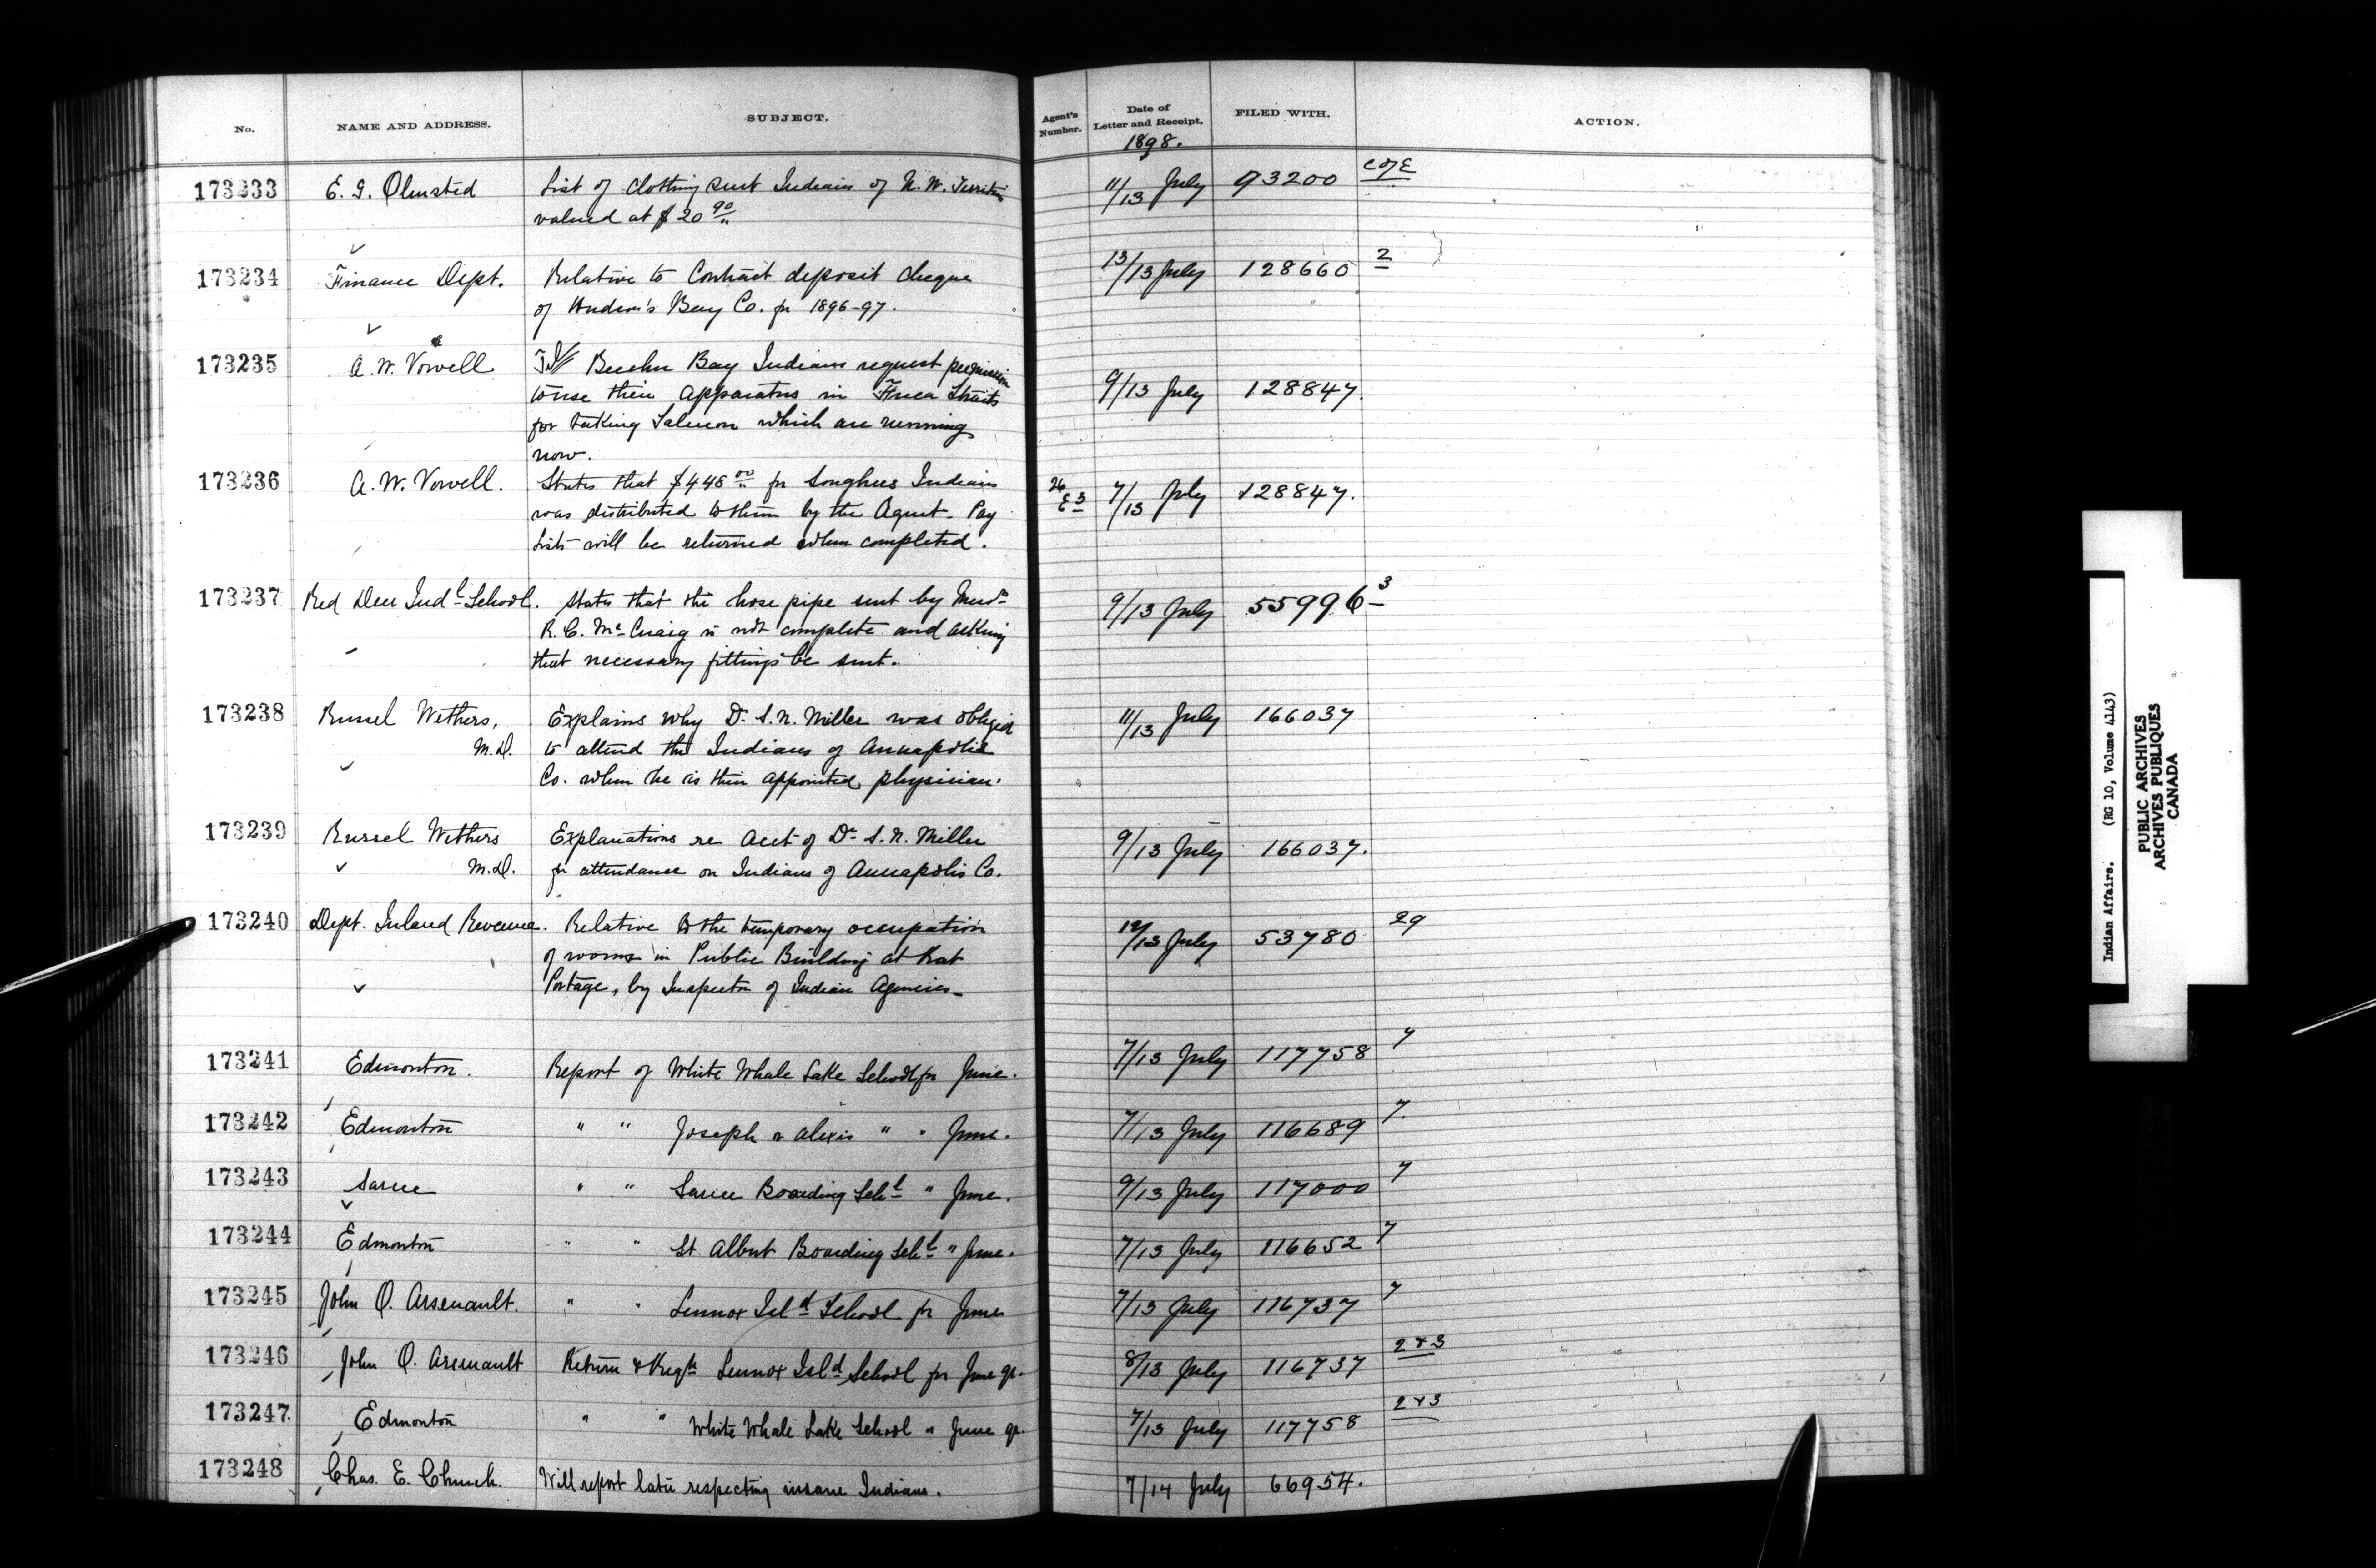 No. NAME AND ADDRESS. SUBJECT. Agent's Number. Date of Letter and Receipt. FILED WITH. ACTION.
1898.
173233 E. G. Olmsted List of Clothing sent Indians of N. W. Territories 11/13 July 93200 C of E
valued at $20 90/"
173234 Finance Dept. Relative to Contract deposit cheque 13/13 July 128660 2
of Hudson's Bay Co. for 1896-97.
173235 A. W. Vowell Beecher Bay Indians request permission 9/13 July 128847.
to use their apparatus in Fuca Straits
for taking Salmon which are running
now.
173236 A. W. Vowell. States that $448 00/" for Songhees Indians 26 E 3 7/13 July 128847.
was distributed to them by the Agent. Pay
Lists will be returned when completed.
173237 Red Deer Indl School. States that the hose pipe sent by Messrs 9/13 July 55996 3
R. C. McCuaig is not complete and asking
that necessary fittings be sent.
173238 Russel Withers, Explains why Dr. S. N. Miller was obliged 11/13 July 166037
M.D. to attend the Indians of Annapolis
Co. when he is their appointed physician.
173239 Russel Withers Explanations re Acct of Dr. S. N. Miller 9/13 July 166037.
M.D. for attendance on Indians of Annapolis Co.
173240 Dept. Inland Revenue. Relative to the temporary occupation 12/13 July 53780 29
of rooms in Public Building at Rat
Portage, by Inspector of Indian Agencies.
173241 Edmonton. Report of White Whale Lake School for June. 7/13 July 117758 7
173242 Edmonton " " Joseph & Alexis " " June. 7/13 July 116689 7.
173243 Sarcee " " Sarcee Boarding Schl " June. 9/13 July 117000 7
173244 Edmonton " " St Albert Boarding Schl " June. 7/13 July 116652 7
173245 John O. Arsenault. " " Lennox Isld School for June 7/13 July 116737 7
173246 John O. Arsenault Return & Regtr Lennox Isld School for June qr. 8/13 July 116737 2 & 3
173247 Edmonton " " White Whale Lake School " June qr. 7/13 July 117758 2 & 3
173248 Chas. E. Church. Will report later respecting insane Indians. 7/14 July 66954.
Indian Affairs. (RG 10, Volume 4143)
PUBLIC ARCHIVES
ARCHIVES PUBLIQUES
CANADA